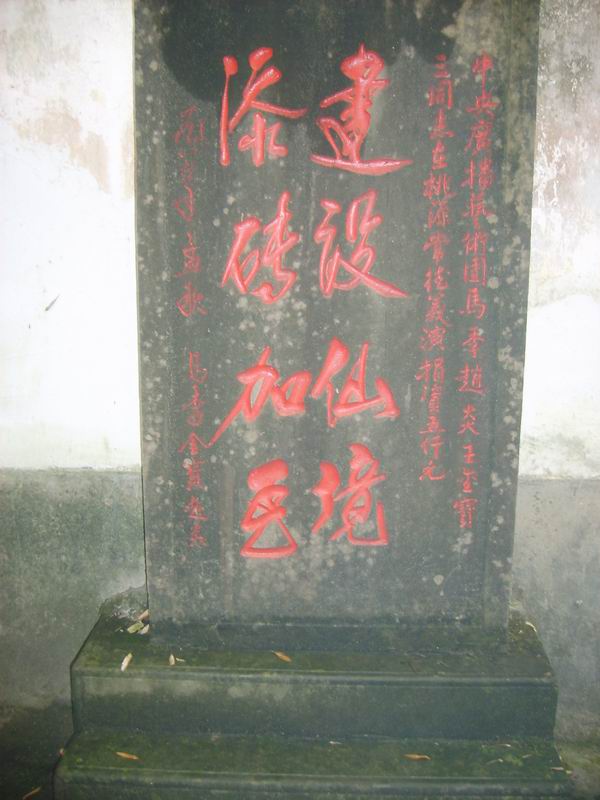 中央廣播藝術團馬季趙炎王金寶
三同志在桃源常德義演捐資五仟元
建设仙境
添砖加瓦
年孟秋 馬季金寶趙炎